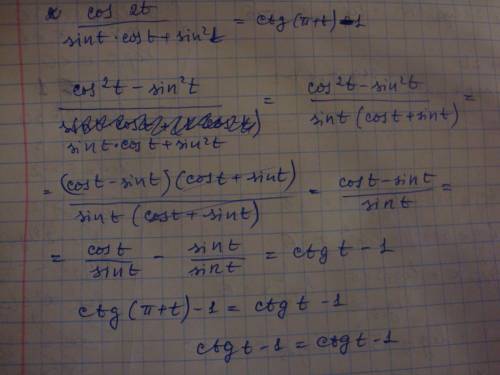 cos 2t / (sint · cost + sin²t) = ctg (π+t) - 1
(cos²t - sin²t) / (sint · cost + sin²t) = (cos²t - sin²t) / (sint (cost + sint)) =
= (cost - sint) (cost + sint) / (sint (cost + sint)) = (cost - sint) / sint =
= cost / sint - sint / sint = ctg t - 1
ctg (π+t) - 1 = ctg t - 1
ctg t - 1 = ctg t - 1